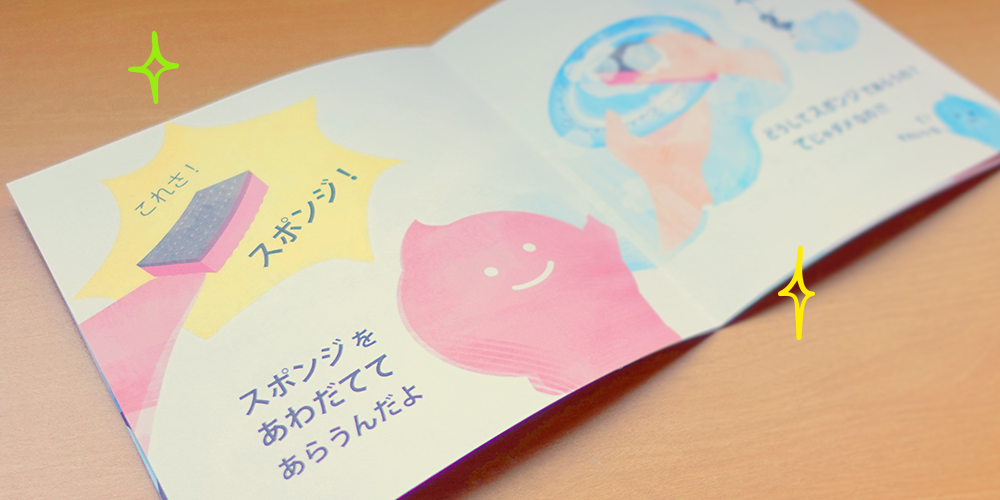 これさ!
スポンジ!
スポンジを
あわだてて
あらうんだよ
どうしてスポンジであらうの?
てじゃダメなの?!